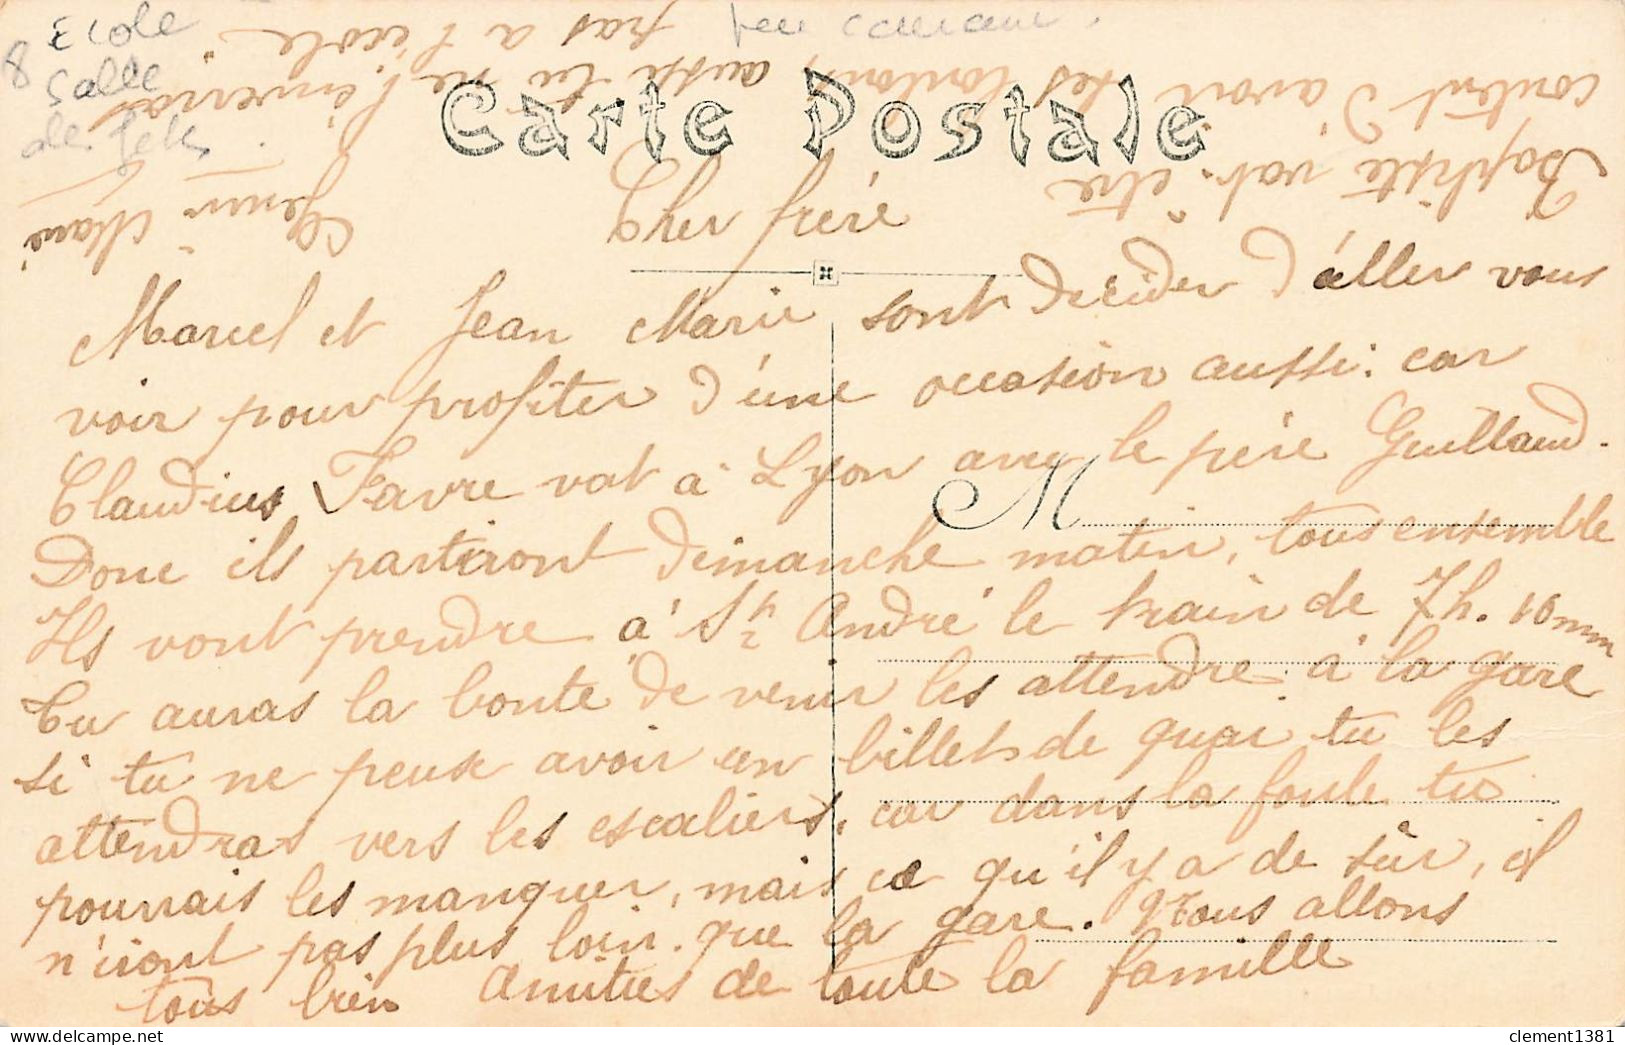 Ecole
8 Salle
de fetes
peu courant.
Carte Postale
Cher frére
Marcel et Jean Marie sont decider d'aller vous
voir pour profiter d'une occasion aussi: car
Claudius Favre vat à Lyon avec le pére Guillaud.
M
Donc ils partiront dimanche matin, tous ensemble
Ils vont prendre à St André le train de 7h. 10mm
Tu auras la bonté de venir les attendre à la gare
si tu ne peux avoir un billet de quai tu les
attendras vers les escaliers, car dans la foule tu
pourrais les manquer, mais ce qu'il y a de sûr, il
n'iront pas plus loin que la gare. Nous allons
tous bien Amities de toute la famille
Baptiste vat être
content d'avoir ses tontons, aussi tu ne l'enverras
pas à l'école.
Marie
clement1381